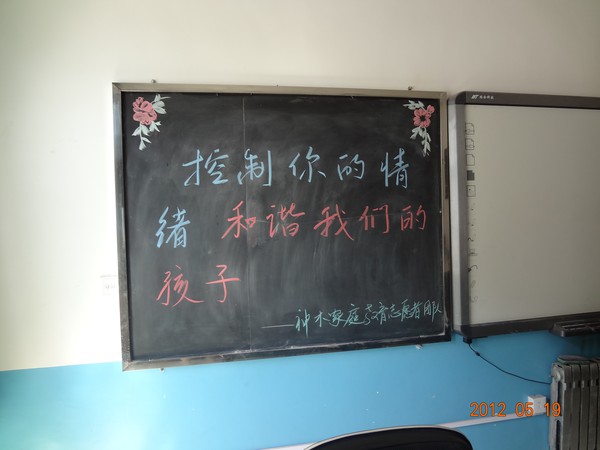 控制你的情
绪 和谐我们的
孩子
——神木家庭教育志愿者团队
2012 05 19